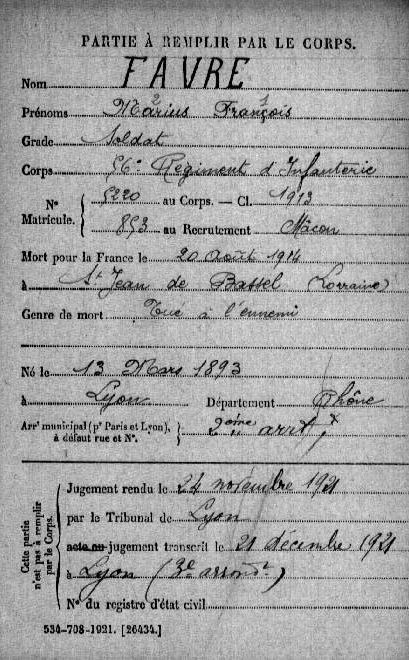 PARTIE À REMPLIR PAR LE CORPS.
Nom FAVRE
Prénoms Marius François
2 1
Grade Soldat
Corps 56e Régiment d'Infanterie
N° Matricule. { 5220 au Corps. — Cl. 1913
853 au Recrutement Mâcon
Mort pour la France le 20 août 1914
à St Jean de Bassel (Lorraine)
Genre de mort Tué à l'ennemi
Né le 13 Mars 1893
à Lyon Département Rhône
Arrt municipal (pr Paris et Lyon), à défaut rue et N°. } 2ème arrt
Cette partie n'est pas à remplir par le Corps.
Jugement rendu le 24 novembre 1921
par le Tribunal de Lyon
acte ou jugement transcrit le 21 décembre 1921
à Lyon (3e arrondt)
N° du registre d'état civil
534-708-1921. [26434.]